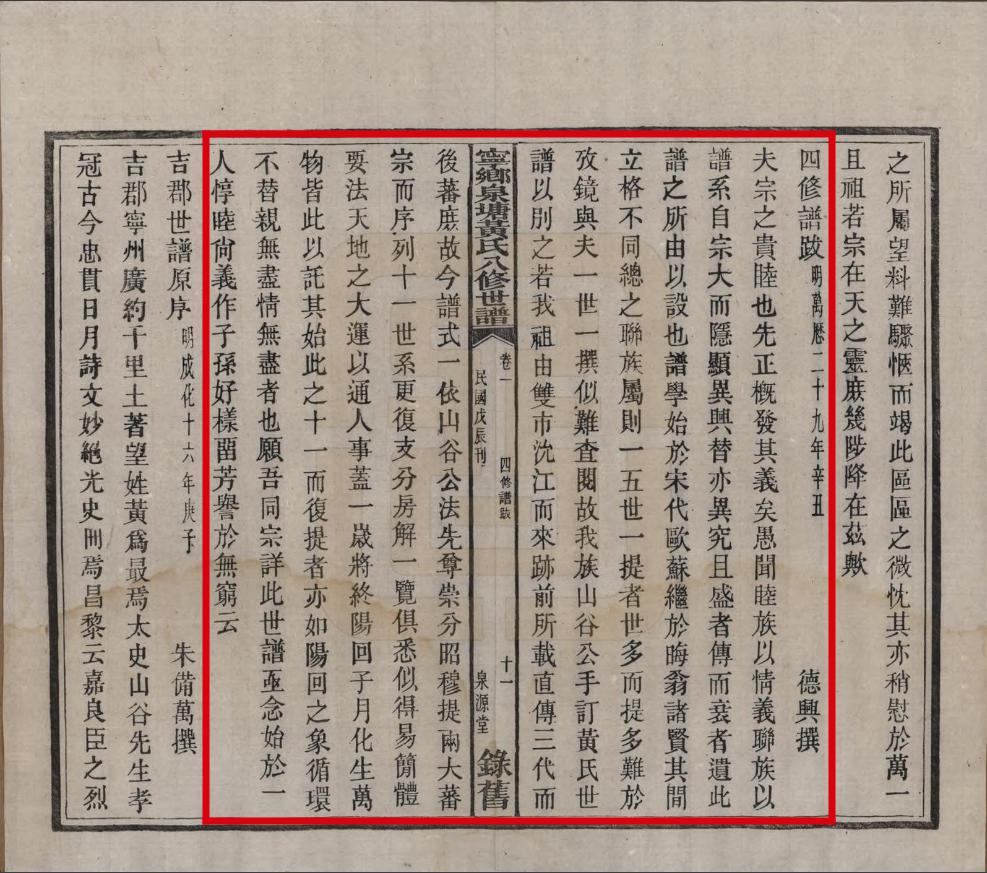 之所屬望料難驟愜而竭此區區之微忱其亦稍慰於萬一
且祖若宗在天之靈庶幾陟降在茲歟
四修譜跋 明萬曆二十九年辛丑 德興撰
夫宗之貴睦也先正槪發其義矣愚聞睦族以情義聯族以
譜系自宗大而隱顯異興替亦異究且盛者傳而衰者遺此
譜之所由以設也譜學始於宋代歐蘇繼於晦翁諸賢其間
立格不同總之聯族屬則一五世一提者世多而提多難於
攷鏡與夫一世一撰似難查閱故我族山谷公手訂黃氏世
譜以別之若我祖由雙市沈江而來跡前所載直傳三代而
寧鄉泉塘黃氏八修世譜 卷一 四修譜跋 十一 錄舊
民國戊辰刊 泉源堂
後蕃庶故今譜式一依山谷公法先尊崇分昭穆提兩大蕃
宗而序列十一世系更復支分房解一覽俱悉似得易簡體
要法天地之大運以通人事蓋一歲將終陽回子月化生萬
物皆此以託其始此之十一而復提者亦如陽回之象循環
不替親無盡情無盡者也願吾同宗詳此世譜亟念始於一
人惇睦尙義作子孫好樣畱芳譽於無窮云
吉郡世譜原序 明成化十六年庚子 朱備萬撰
吉郡寧州廣約千里土著望姓黃爲最焉太史山谷先生孝
冠古今忠貫日月詩文妙絕光史冊焉昌黎云嘉良臣之烈